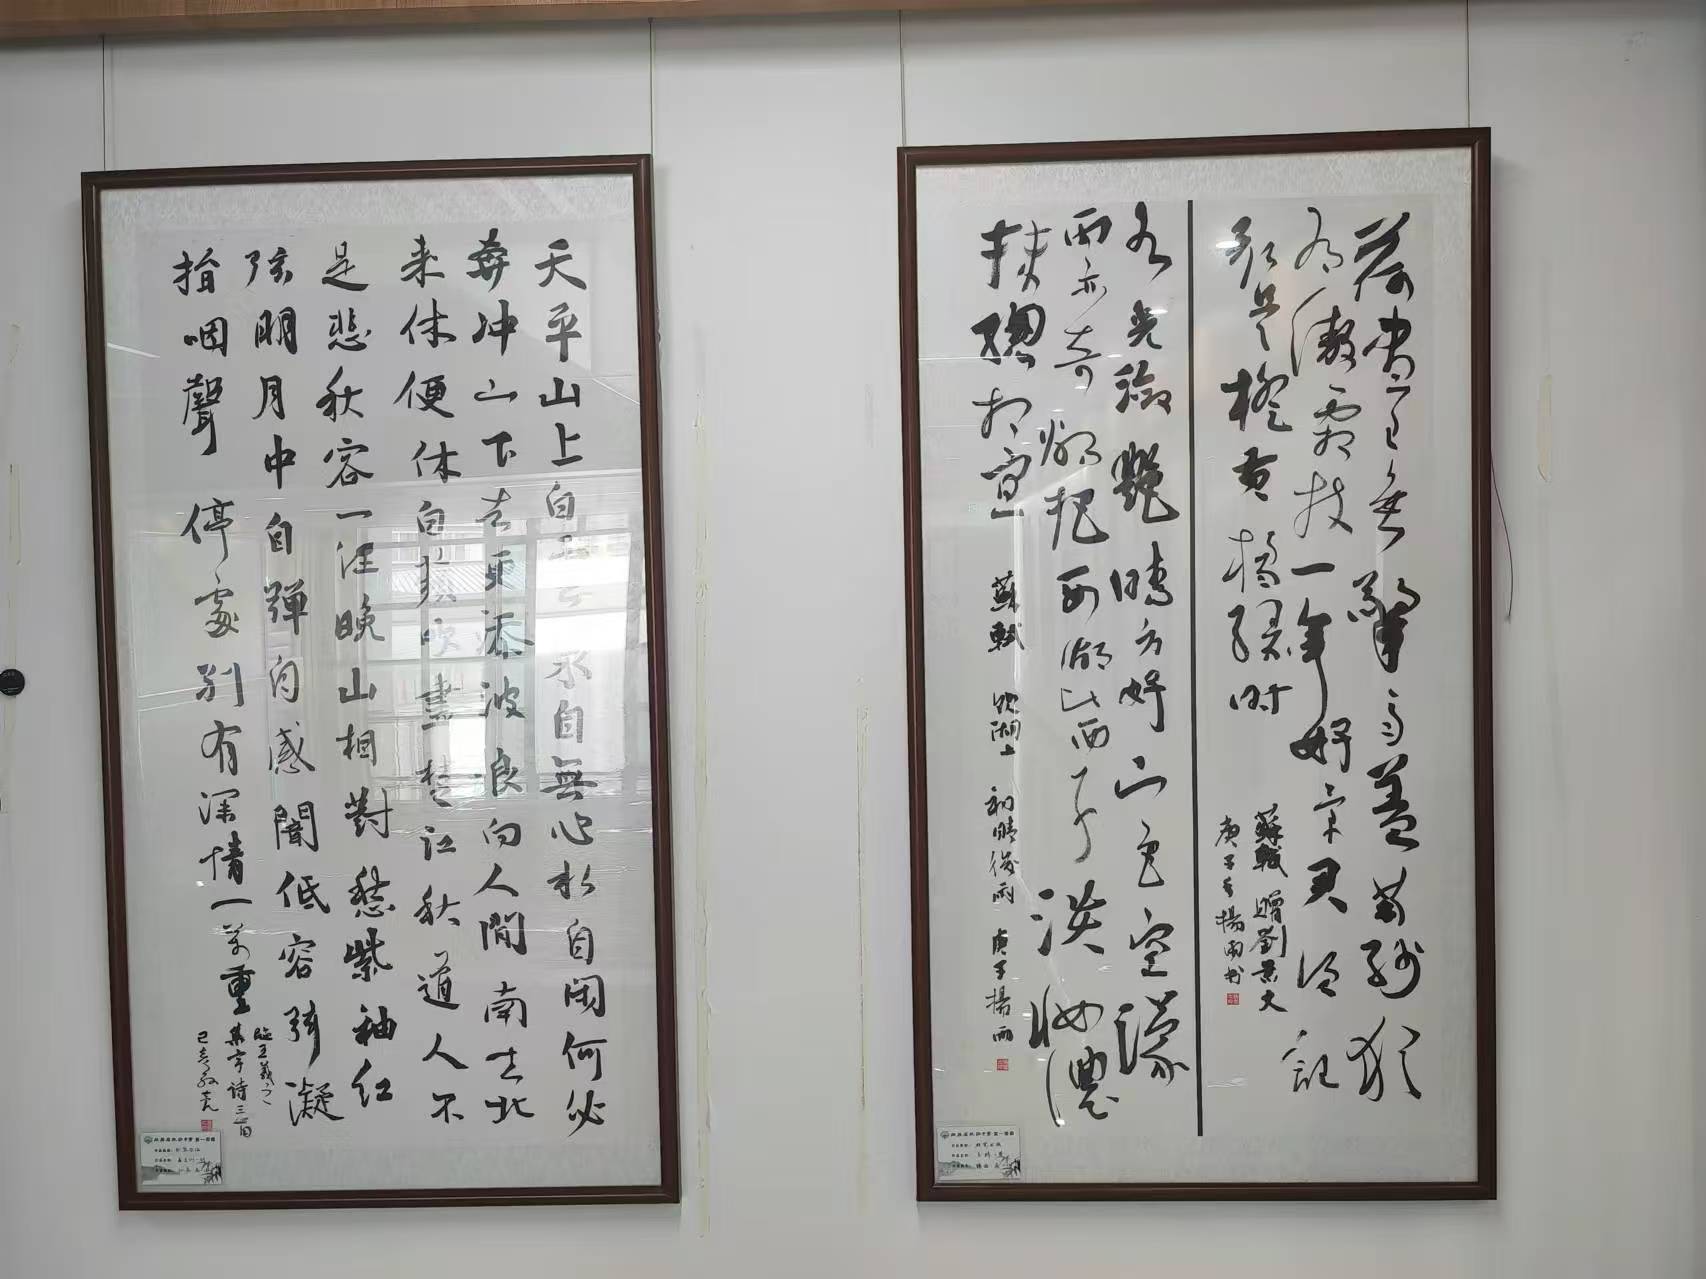 天平山上白云泉自無心水自闲何必
奔冲山下去更添波浪向人間南去北
来休便休白蘋吹盡楚江秋道人不
是悲秋客一任晚山相對愁紫袖红
弦明月中自弹自感闇低容弦凝
指咽聲停處别有深情一萬重
临王羲之
集字诗三首
己亥
荷盡已無擎雨蓋菊殘猶
有傲霜枝一年好景君须記
最是橙黄橘緑时
蘇軾 贈劉景文
庚子冬楊雨书
水光潋艷晴方好山色空濛
雨亦奇欲把西湖比西子淡妆濃
抹總相宜 蘇軾 饮湖上 初晴後雨 庚子楊雨